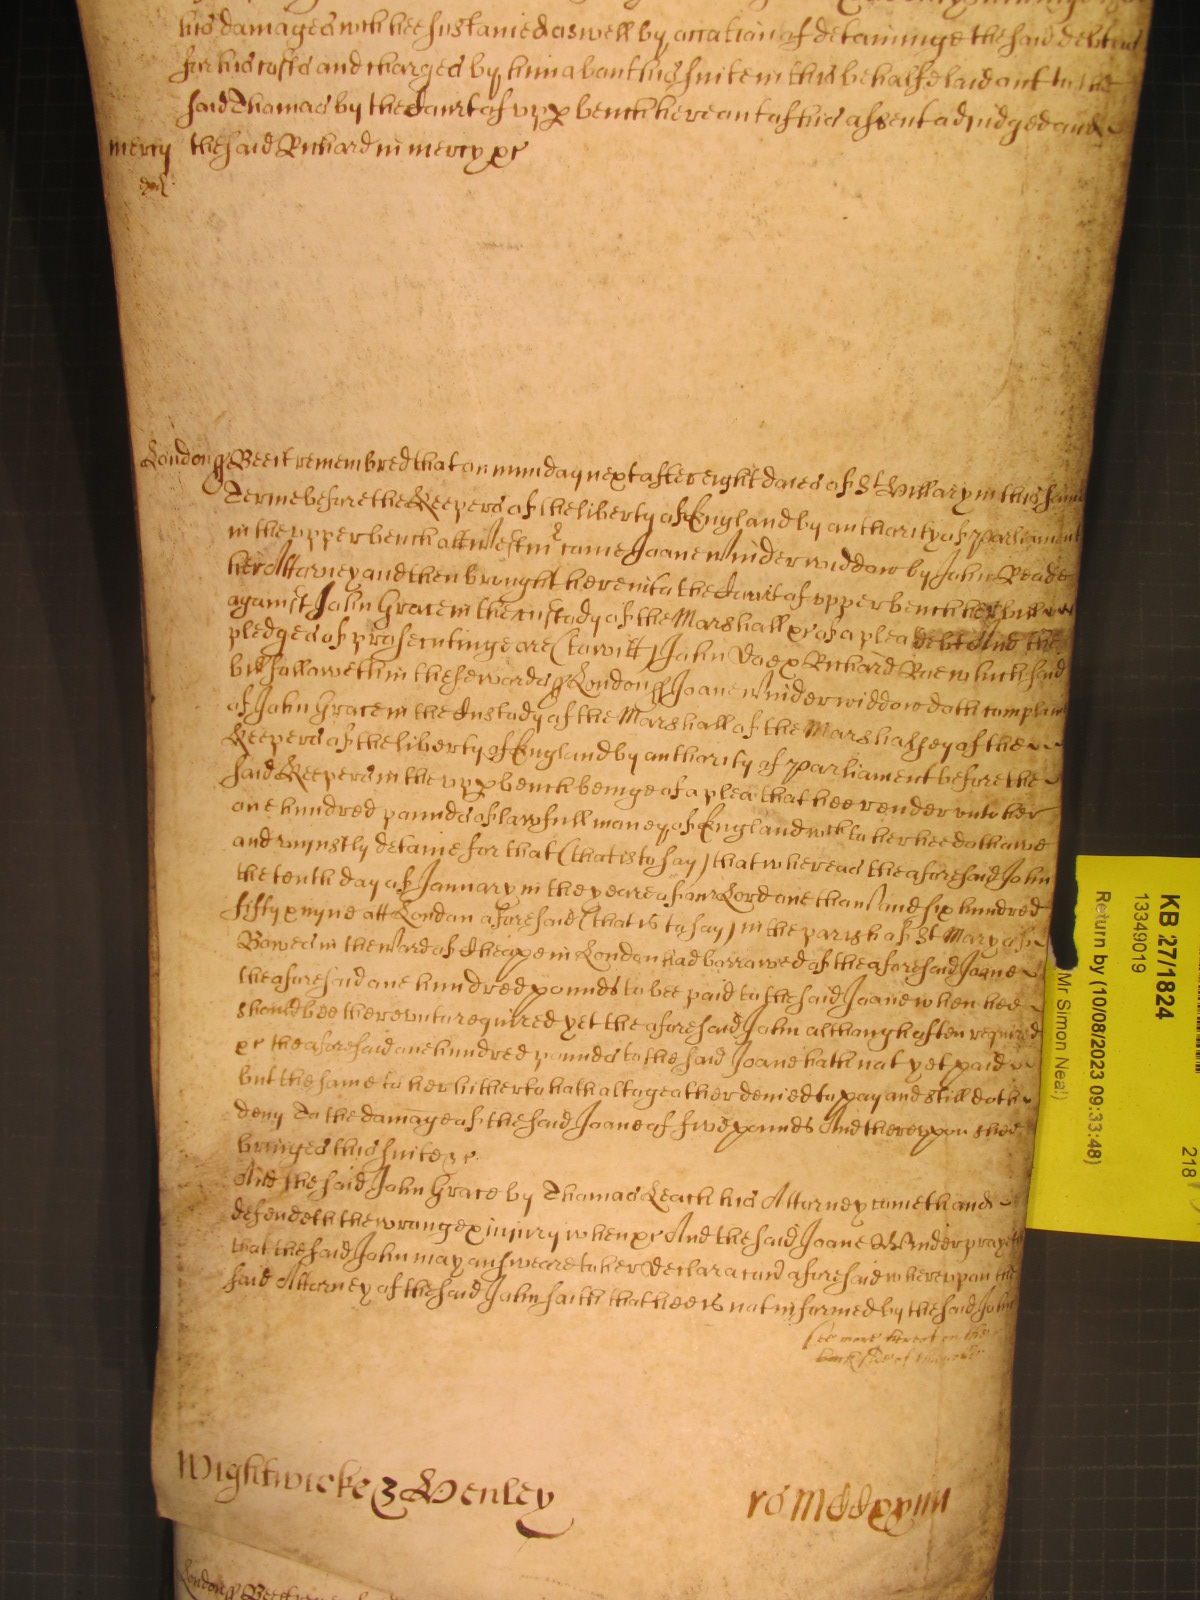 his damages wch hee sustained aswell by occation of detaininge the said debt and
for his costs and charges by him about his suite in this behalfe laid out to the
said Thomas by the Court of upp bench here out of his assent adjudged and
mercy the said Richard in mercy &c
London ss Bee it remembred that on munday next after eight daies of St Hillary in this same
Terme before the Keepers of the liberty of England by authority of Parliament
in the upper bench att Westmr came Joane Winder widdow by John Reade
her Attorney and then brought here into the Court of upper bench her bill
against John Grace in the custody of the Marshall &c of a plea debt And the
pledges of prosecutinge are (to witt) John Doe & Richard Roe which said
bill followeth in these words ss London ss Joane Winder widdow doth complaine
of John Grace in the Custody of the Marshall of the Marshalsey of the
Keepers of the liberty of England by authority of Parliament before the
said Keepers in the upp bench beinge of a plea that hee render unto her
one hundred pounds of lawfull money of England wch to her hee doth owe
and unjustly detaine for that (that is to say) that whereas the aforesaid John
the tenth day of January in the yeare of our Lord one thousand six hundred
fifty & nyne att London aforesaid (that is to say) in the parish of St Mary of
Bowes in the Ward of Cheape in London had borrowed of the aforesaid Joane
the aforesaid one hundred pounds to bee paid to the said Joane when hee
should bee thereunto required yet the aforesaid John although often required
&c the aforesaid one hundred pounds to the said Joane hath not yet paid
but the same to her hitherto hath altogeather denied to pay and still doth
deny To the damage of the said Joane of five pounds And thereupon shee
bringes this suite &c
And the said John Grace by Thomas Leach his Attorney cometh and
defendeth the wronge & injury when &c And the said Joane Winder prayeth
that the said John may answeare to her Declaracon aforesaid whereupon the
said Attorney of the said John saith that hee is not informed by the said John
see more hereof on the
back side of this rolle
Wightwicke & Henley
ro Mddxxiiii
London ss Bee it
KB 27/1824
13349019
Return by (10/08/2023 09:33:48)
Mr Simon Neal
218